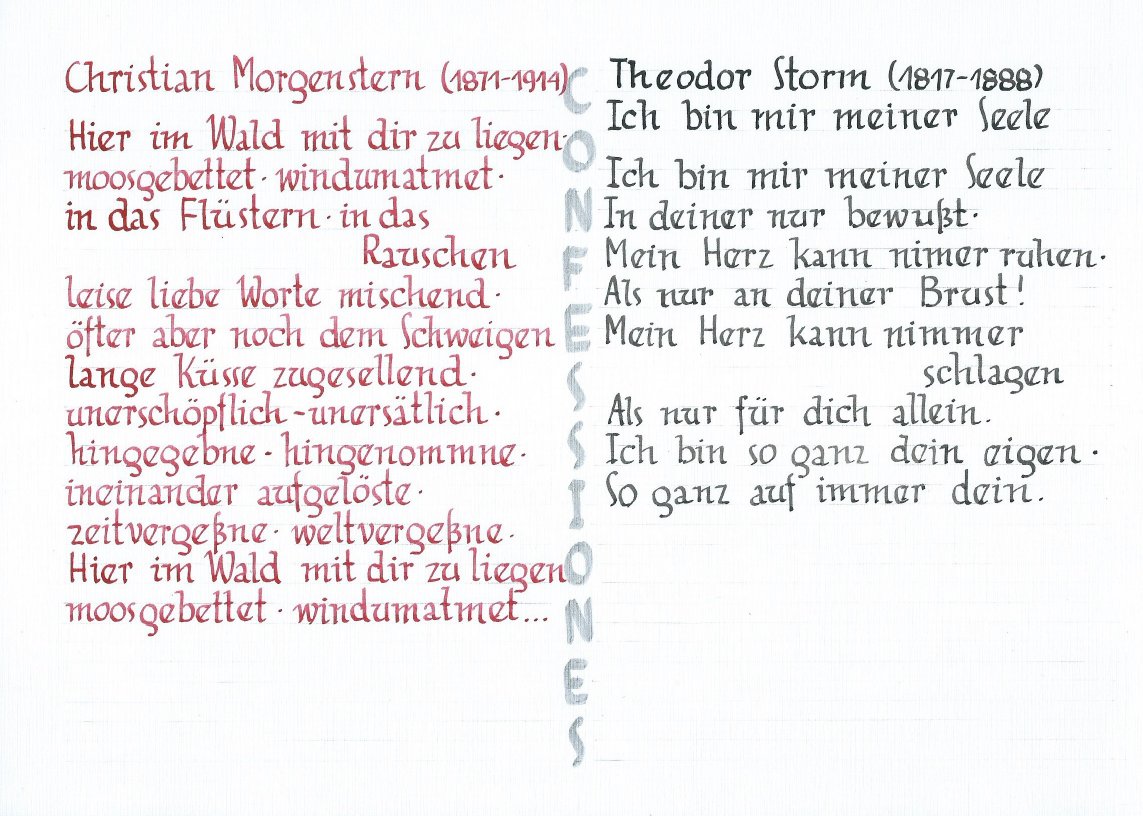 Christian Morgenstern (1871-1914)
Hier im Wald mit dir zu liegen·
moosgebettet · windumatmet·
in das Flüstern · in das
Rauschen
leise liebe Worte mischend·
öfter aber noch dem Schweigen
lange Küsse zugesellend·
unerschöpflich - unersätlich·
hingegebne · hingenommne·
ineinander aufgelöste·
zeitvergeßne · weltvergeßne·
Hier im Wald mit dir zu liegen
moosgebettet · windumatmet...
CONFESSIONES
Theodor Storm (1817-1888)
Ich bin mir meiner Seele
Ich bin mir meiner Seele
In deiner nur bewußt·
Mein Herz kann nimer ruhen·
Als nur an deiner Brust!
Mein Herz kann nimmer
schlagen
Als nur für dich allein.
Ich bin so ganz dein eigen·
So ganz auf immer dein.